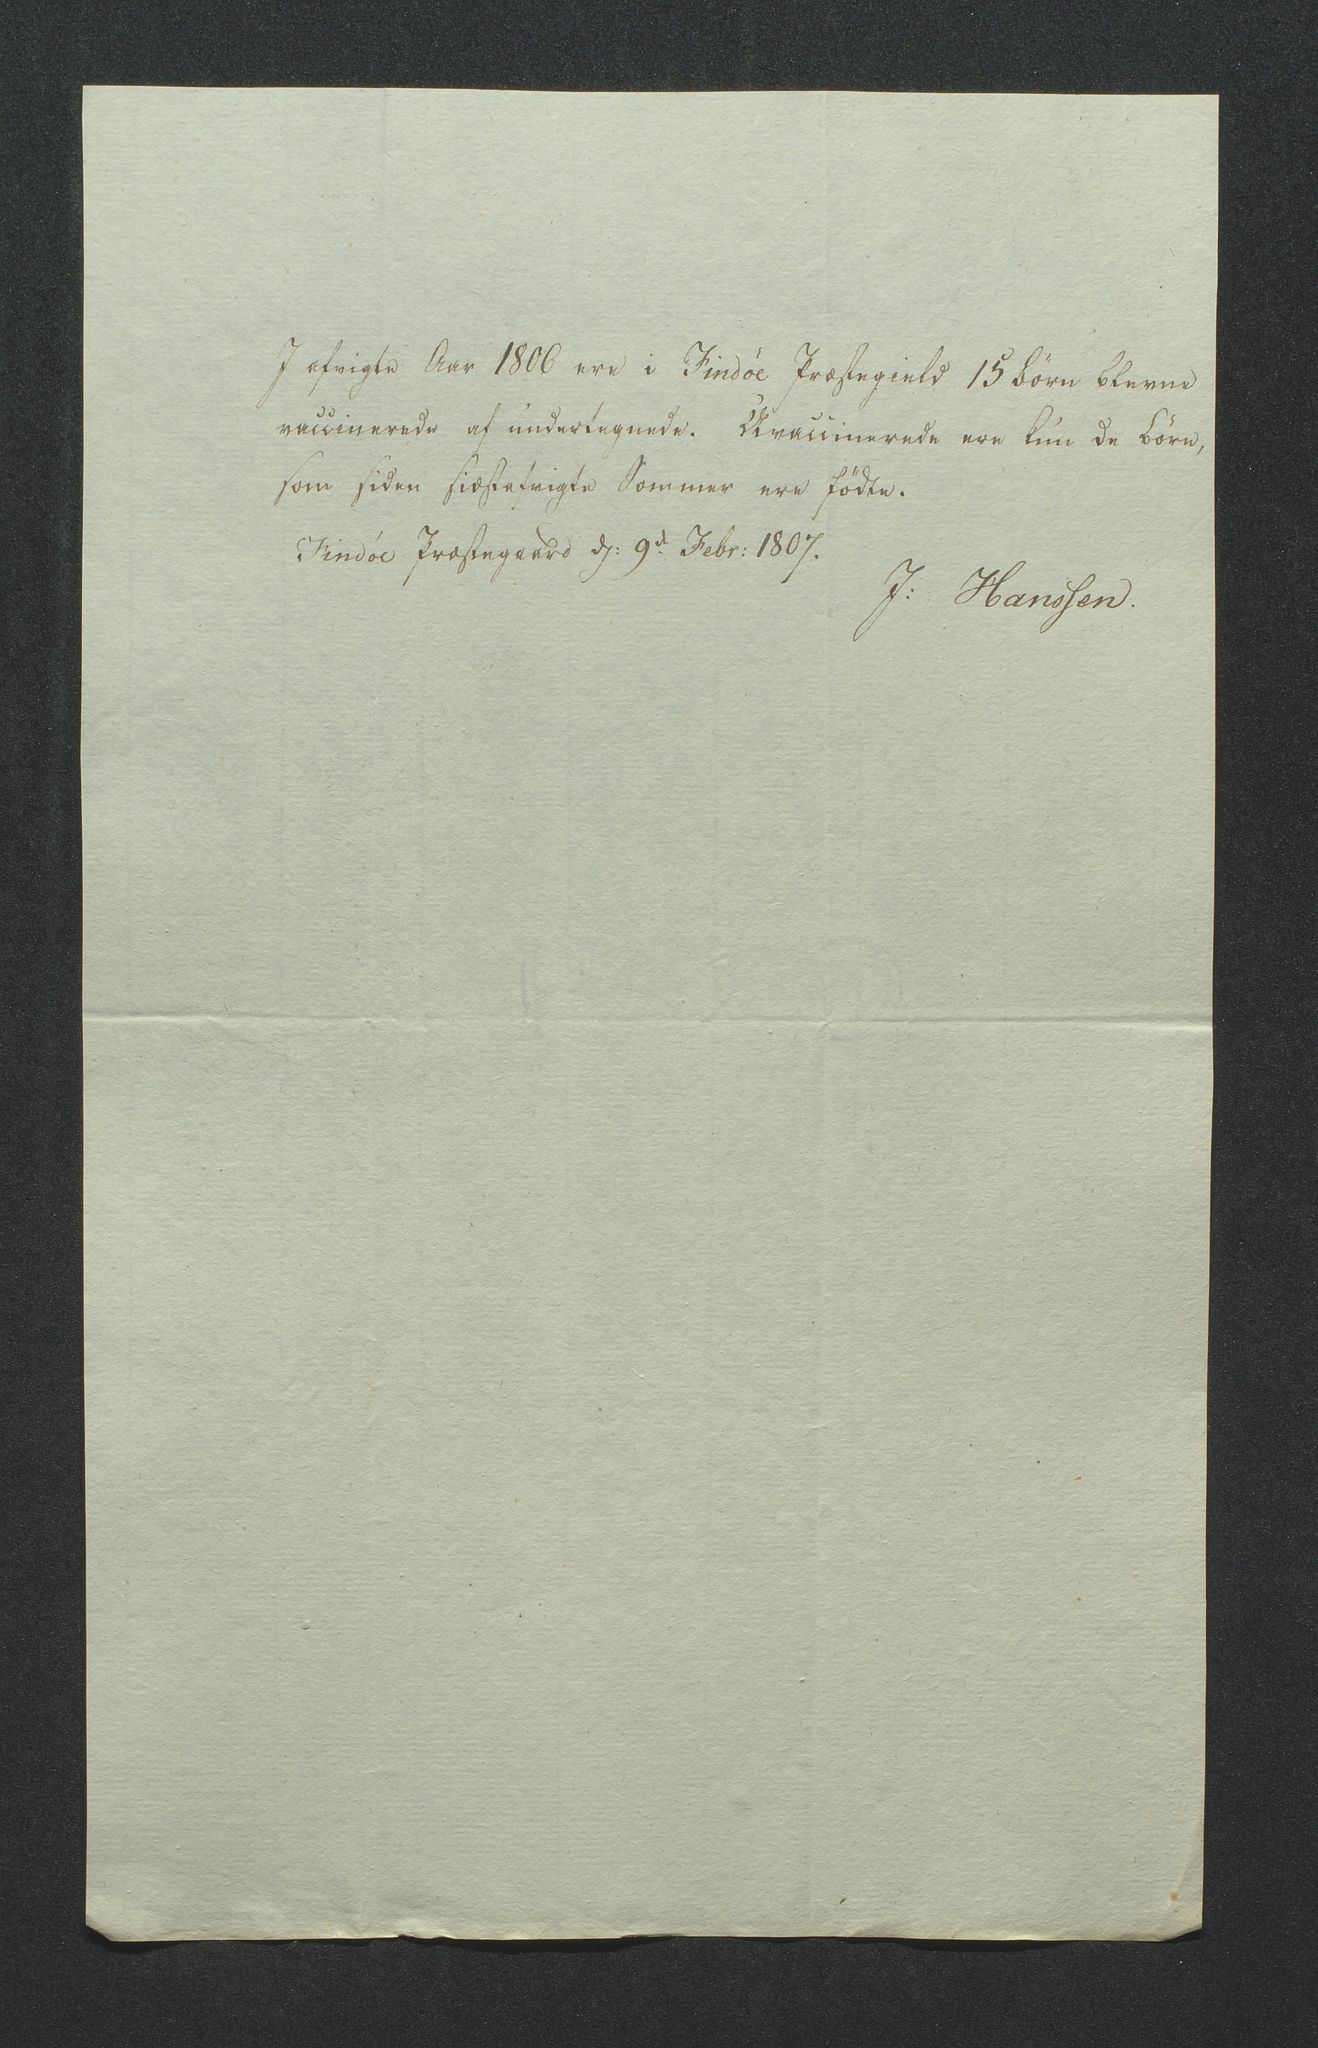 I afvigte Aar 1806 ere i Findöe Præstegield 15 börn blevne
vaccinerede af undertegnede. Uvaccinerede ere kun de börn,
som siden sidstafvigte Sommer ere födte.
Findöe Præstegaard d: 9d Febr: 1807.
J: Hanssen.